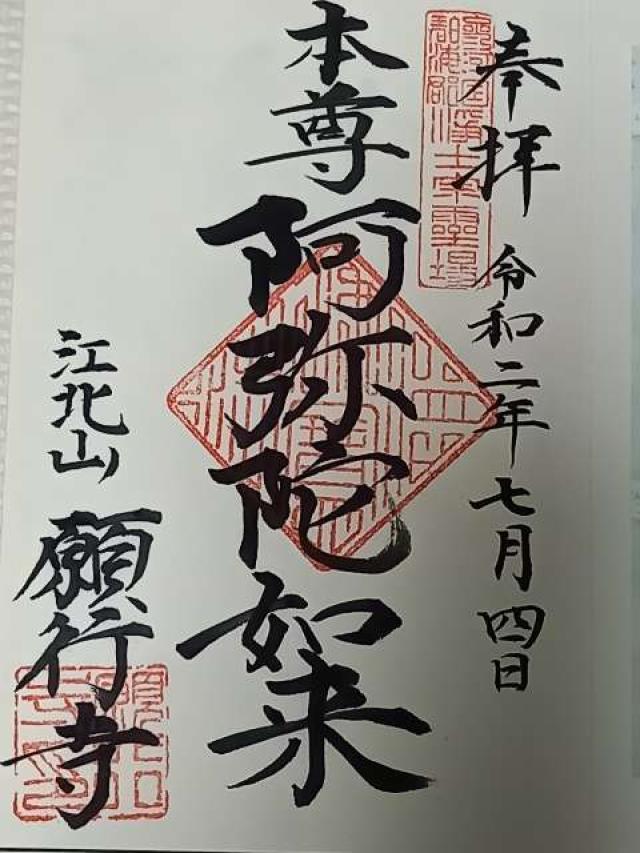 奉拝 令和二年七月四日
本尊
阿弥陀如来
江北山 願行寺